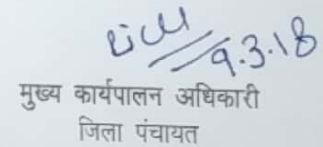 9.3.18
मुख्य कार्यपालन अधिकारी
जिला पंचायत